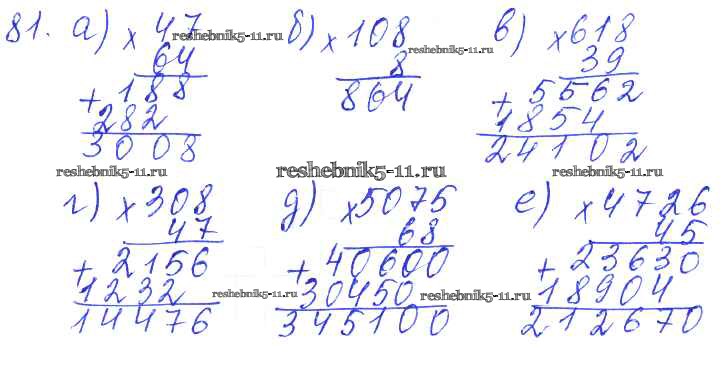 81. а) × 47 reshebnik5-11.ru б) × 108 reshebnik5-11.ru в) × 618
64 8 39
+ 188 864 + 5562
282 1854
3008 24102
reshebnik5-11.ru reshebnik5-11.ru reshebnik5-11.ru
г) × 308 д) × 5075 е) × 4726
47 68 45
+ 2156 + 40600 + 23630
1232 reshebnik5-11.ru 30450 reshebnik5-11.ru 18904
14476 345100 212670